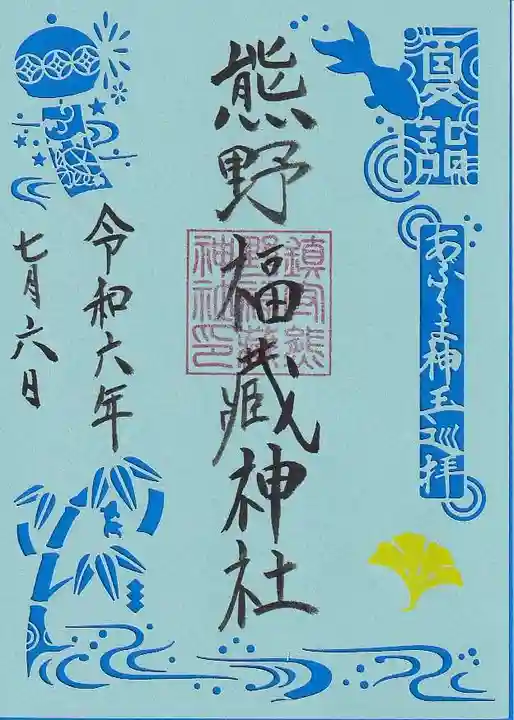 夏詣
あぶくま神玉巡拝
熊野福藏神社
令和六年
七月六日